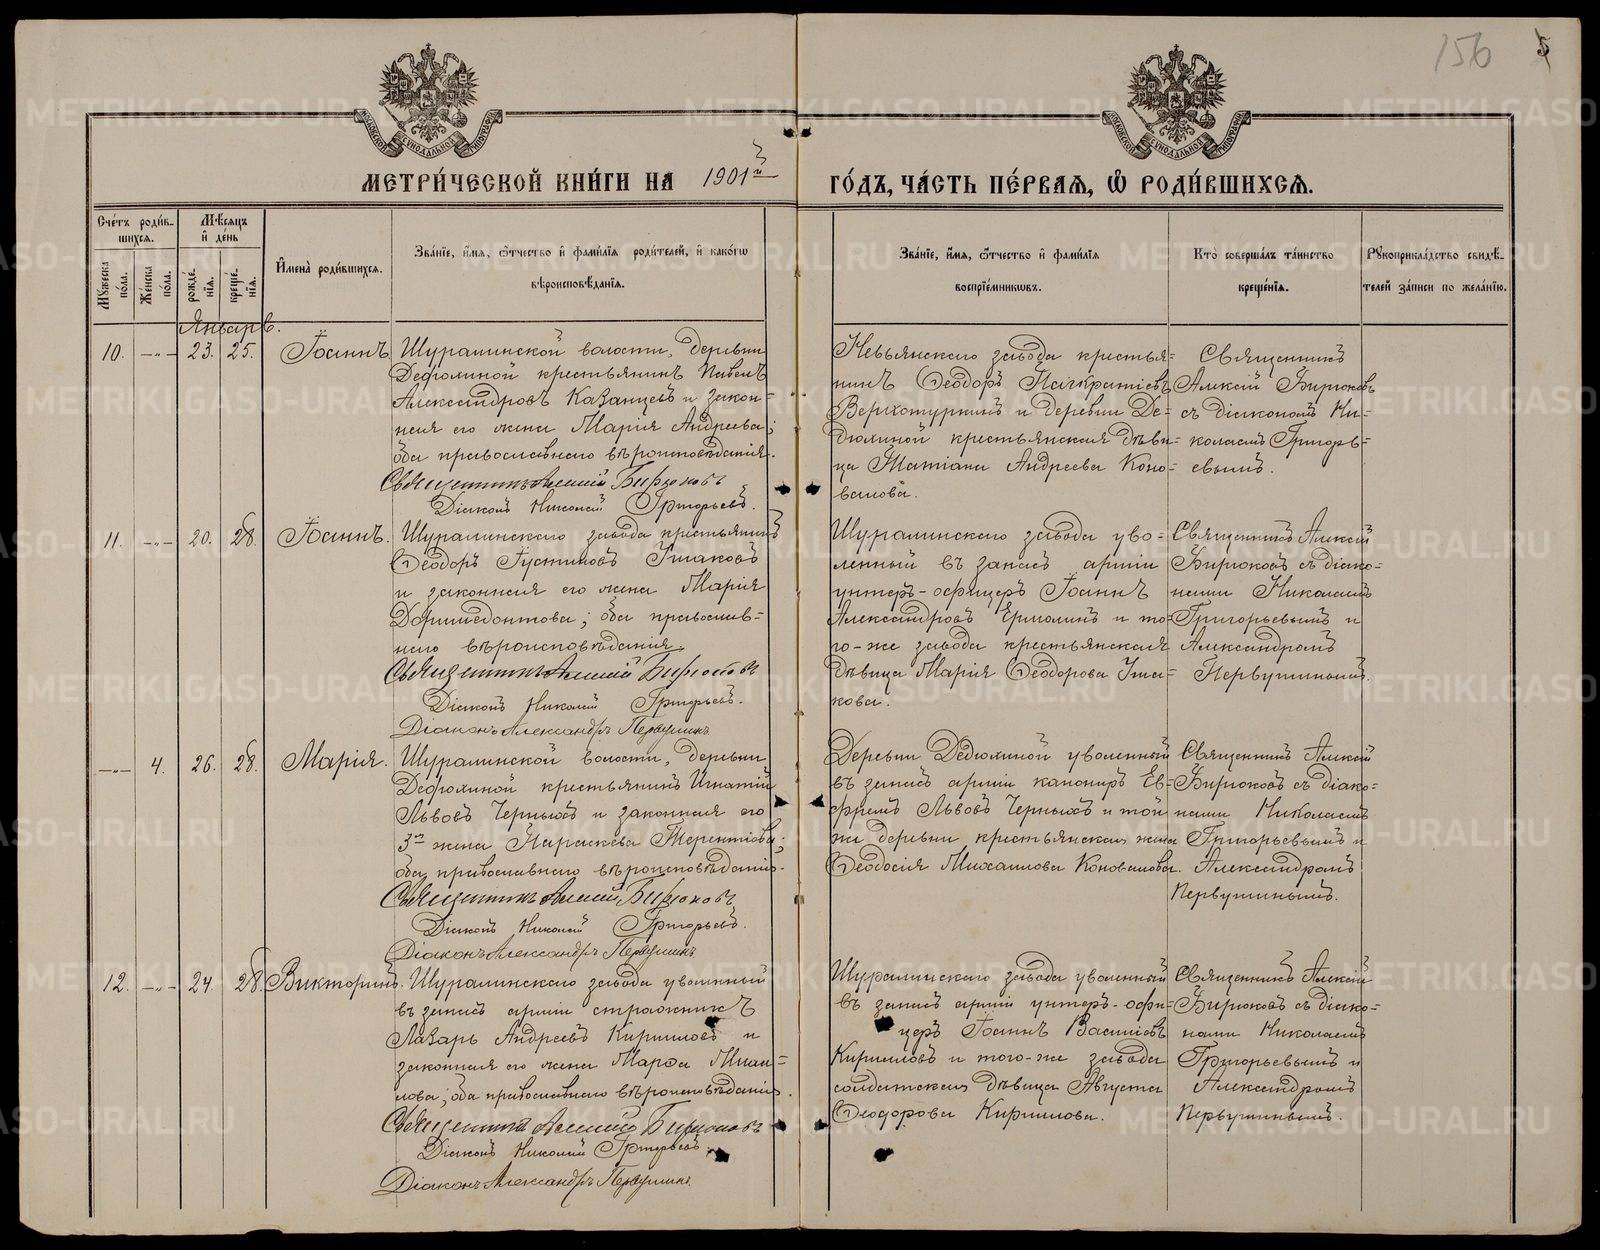 156 5
МЕТРИ́ЧЕСКОЙ КНИ́ГИ НА 1901й ГО́ДЪ, ЧА́СТЬ ПЕ́РВАЯ, Ѡ РОДИ́ВШИХСЯ.
Сче́тъ роди́в-
шихся.
Мꙋжеска по́ла.
Же́нска по́ла.
Мѣ́сяцъ
и́ де́нь
рожде́нїя.
креще́нїя.
И҆мена̀ роди́вшихся.
Зва́нїе, и҆́мя, ѻ҆́тчество и҆ фами́лїя роди́телей, и҆ како́гѡ
вѣроисповѣ́данїя.
Зва́нїе, и҆́мя, ѻ҆́тчество и҆ фами́лїя
воспрїе́мникѡвъ.
Кто̀ соверша́лъ та́инство
креще́нїя.
Рꙋкоприкла́дство свидѣ́-
телей за́писи по жела́нїю.
Январь.
10. —„— 23. 25. Іоаннъ.
Шуралинской волости, деревни
Дедюлиной крестьянинъ Павелъ
Александровъ Казанцевъ и закон-
ная его жена Марія Андреева;
оба православнаго вѣроисповѣданія.
Священникъ Алексій Бирюковъ
Діаконъ Николай Григорьевъ.
Невьянскаго завода крестья-
нинъ Ѳеодоръ Панкратіевъ
Верхотуркинъ и деревни Де-
дюлиной крестьянская дѣви-
ца Татіана Андреева Коно-
валова.
Священникъ
Алексій Бирюковъ
съ діакономъ Ни-
колаемъ Григорь-
евымъ.
11. —„— 20. 28. Іоаннъ.
Шуралинскаго завода крестьянинъ
Ѳеодоръ Іустиновъ Ушаковъ
и законная его жена Марія
Доримедонтова; оба православ-
наго вѣроисповѣданія.
Священникъ Алексій Бирюковъ
Діаконъ Николай Григорьевъ.
Діаконъ Александръ Первушинъ
Шуралинскаго завода уво-
ленный въ запасъ арміи
унтеръ-офицеръ Іоаннъ
Александровъ Ермолинъ и то-
го-же завода крестьянская
дѣвица Марія Ѳеодорова Уша-
кова.
Священникъ Алексій
Бирюковъ съ діако-
нами Николаемъ
Григорьевымъ и
Александромъ
Первушинымъ.
—„— 4. 26. 28. Марія.
Шуралинской волости, деревни
Дедюлиной крестьянинъ Игнатій
Львовъ Черныхъ и законная его
3я жена Параскева Терентіева;
оба православнаго вѣроисповѣданія.
Священникъ Алексій Бирюковъ
Діаконъ Николай Григорьевъ.
Діаконъ Александръ Первушинъ
Деревни Дедюлиной уволенный
въ запасъ арміи канониръ Ев-
фремъ Львовъ Черныхъ и той
же деревни крестьянская жена
Ѳеодосія Михаилова Коновалова.
Священникъ Алексій
Бирюковъ съ діако-
нами Николаемъ
Григорьевымъ и
Александромъ
Первушинымъ.
12. —„— 24. 28. Викторинъ.
Шуралинскаго завода уволенный
въ запасъ арміи стражникъ
Лазарь Андреевъ Кирилловъ и
законная его жена Марѳа Миха-
лова; оба православнаго вѣроисповѣданія.
Священникъ Алексій Бирюковъ
Діаконъ Николай Григорьевъ.
Діаконъ Александръ Первушинъ.
Шуралинскаго завода уволенный
въ запасъ арміи унтеръ-офи-
церъ Іоаннъ Василіевъ
Кирилловъ и того-же завода
солдатская дѣвица Августа
Ѳеодорова Кириллова.
Священникъ Алексій
Бирюковъ съ діако-
нами Николаемъ
Григорьевымъ и
Александромъ
Первушинымъ.
METRIKI.GASO-URAL.RU